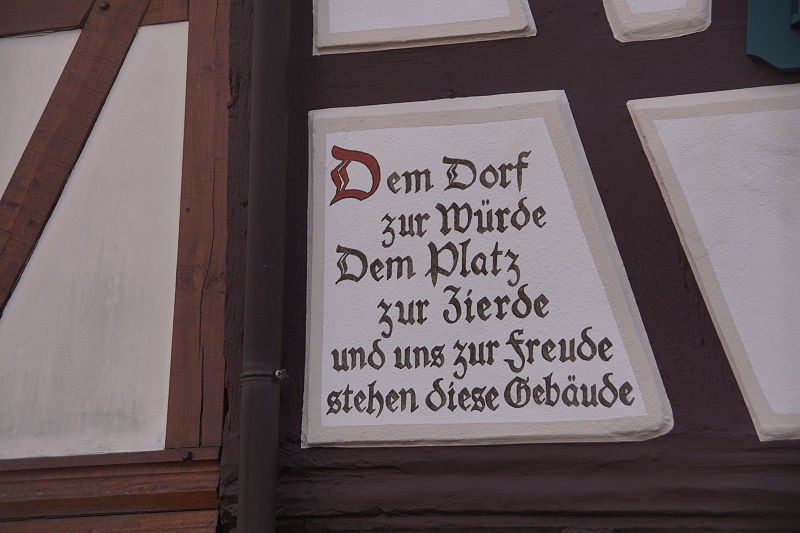 Dem Dorf
zur Würde
Dem Platz
zur Zierde
und uns zur Freude
stehen diese Gebäude